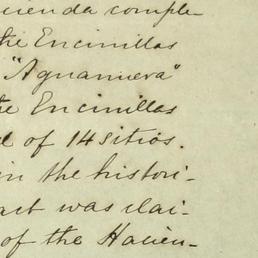 cienda comple-
the Encinillas
"Aguanueva"
the Encinillas
d of 14 sitios.
in the histori-
act was clai-
of the Hacien-